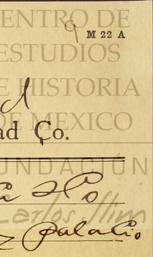 ENTRO DE
M 22 A
ESTUDIOS
E HISTORIA
d
DE MEXICO
ad Co.
FUNDACIÓN
Carlos Slim
Palacio